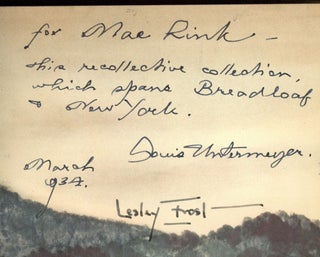 for Mae Rink —
this recollective collection,
which spans Breadloaf
& New York.
Louis Untermeyer.
March
1934.
Lesley Frost